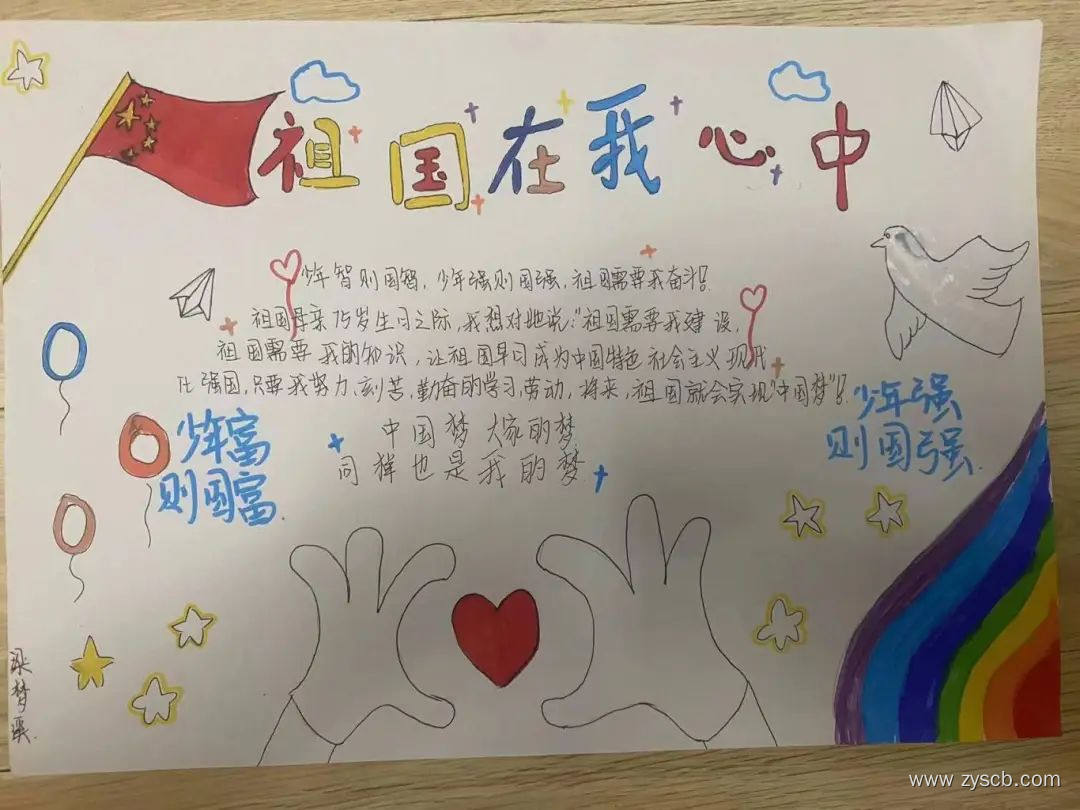 祖国在我心中
少年智则国智，少年强则国强，祖国需要我奋斗！
祖国母亲75岁生日之际，我想对她说：“祖国需要我建设，
祖国需要我的知识，让祖国早日成为中国特色社会主义现代
化强国，只要我努力、刻苦，勤奋的学习，劳动，将来，祖国就会实现“中国梦”！
中国梦 大家的梦
同样也是我的梦
少年富
则国富.
少年强
则国强.
www.zyscb.com